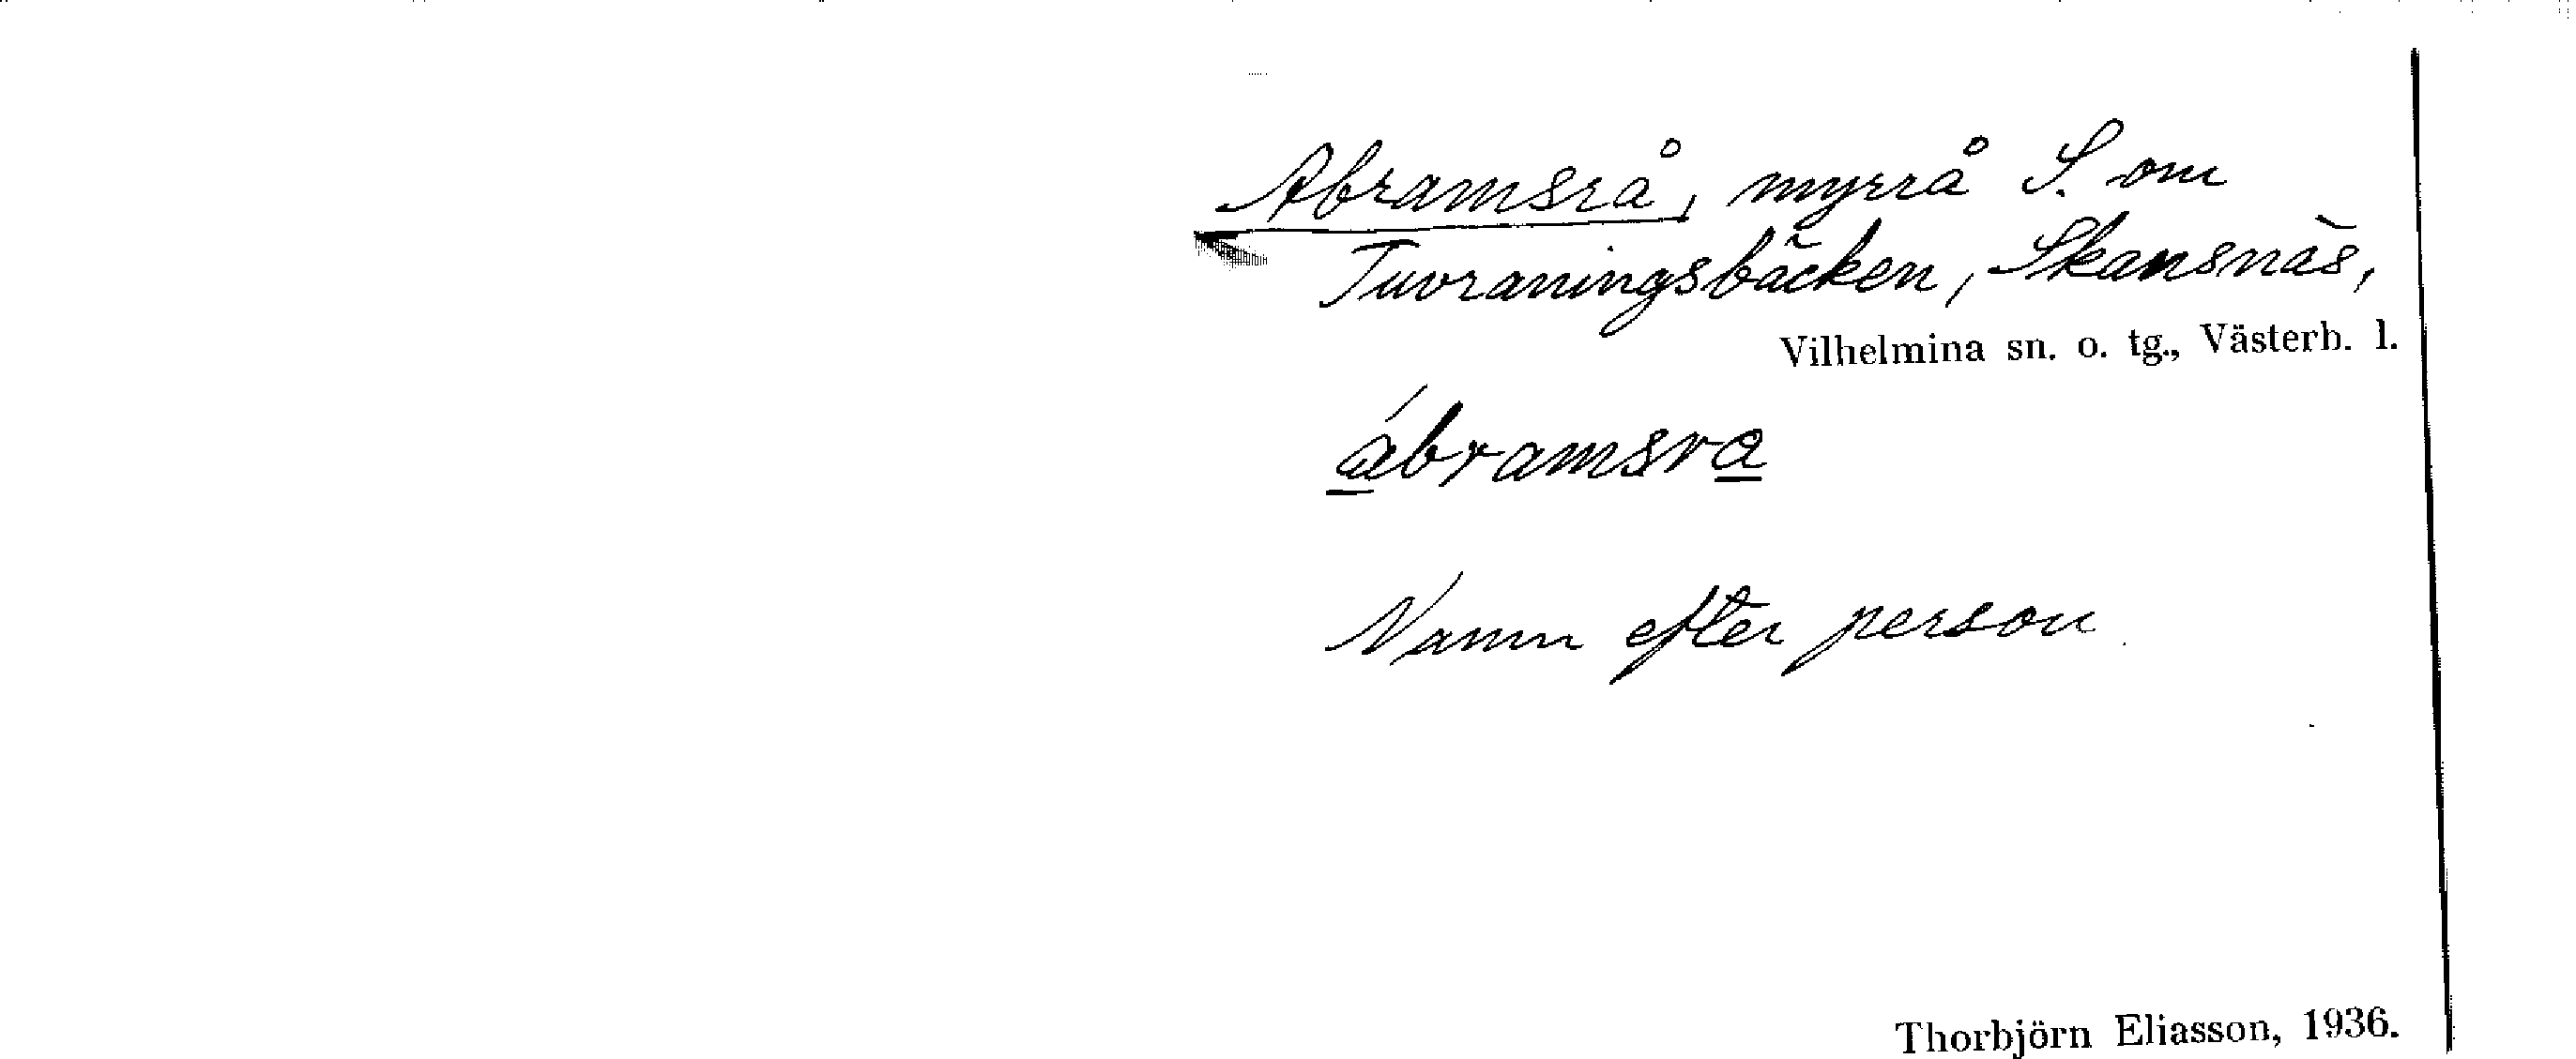 Abramsrå, myrrå S. om
Tuvraningsbäcken, Skansnäs,
Vilhelmina sn. o. tg., Västerb. l.
ábramsra
Namn efter person.
Thorbjörn Eliasson, 1936.